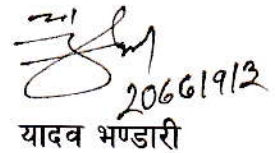 2066/9/2
यादव भण्डारी